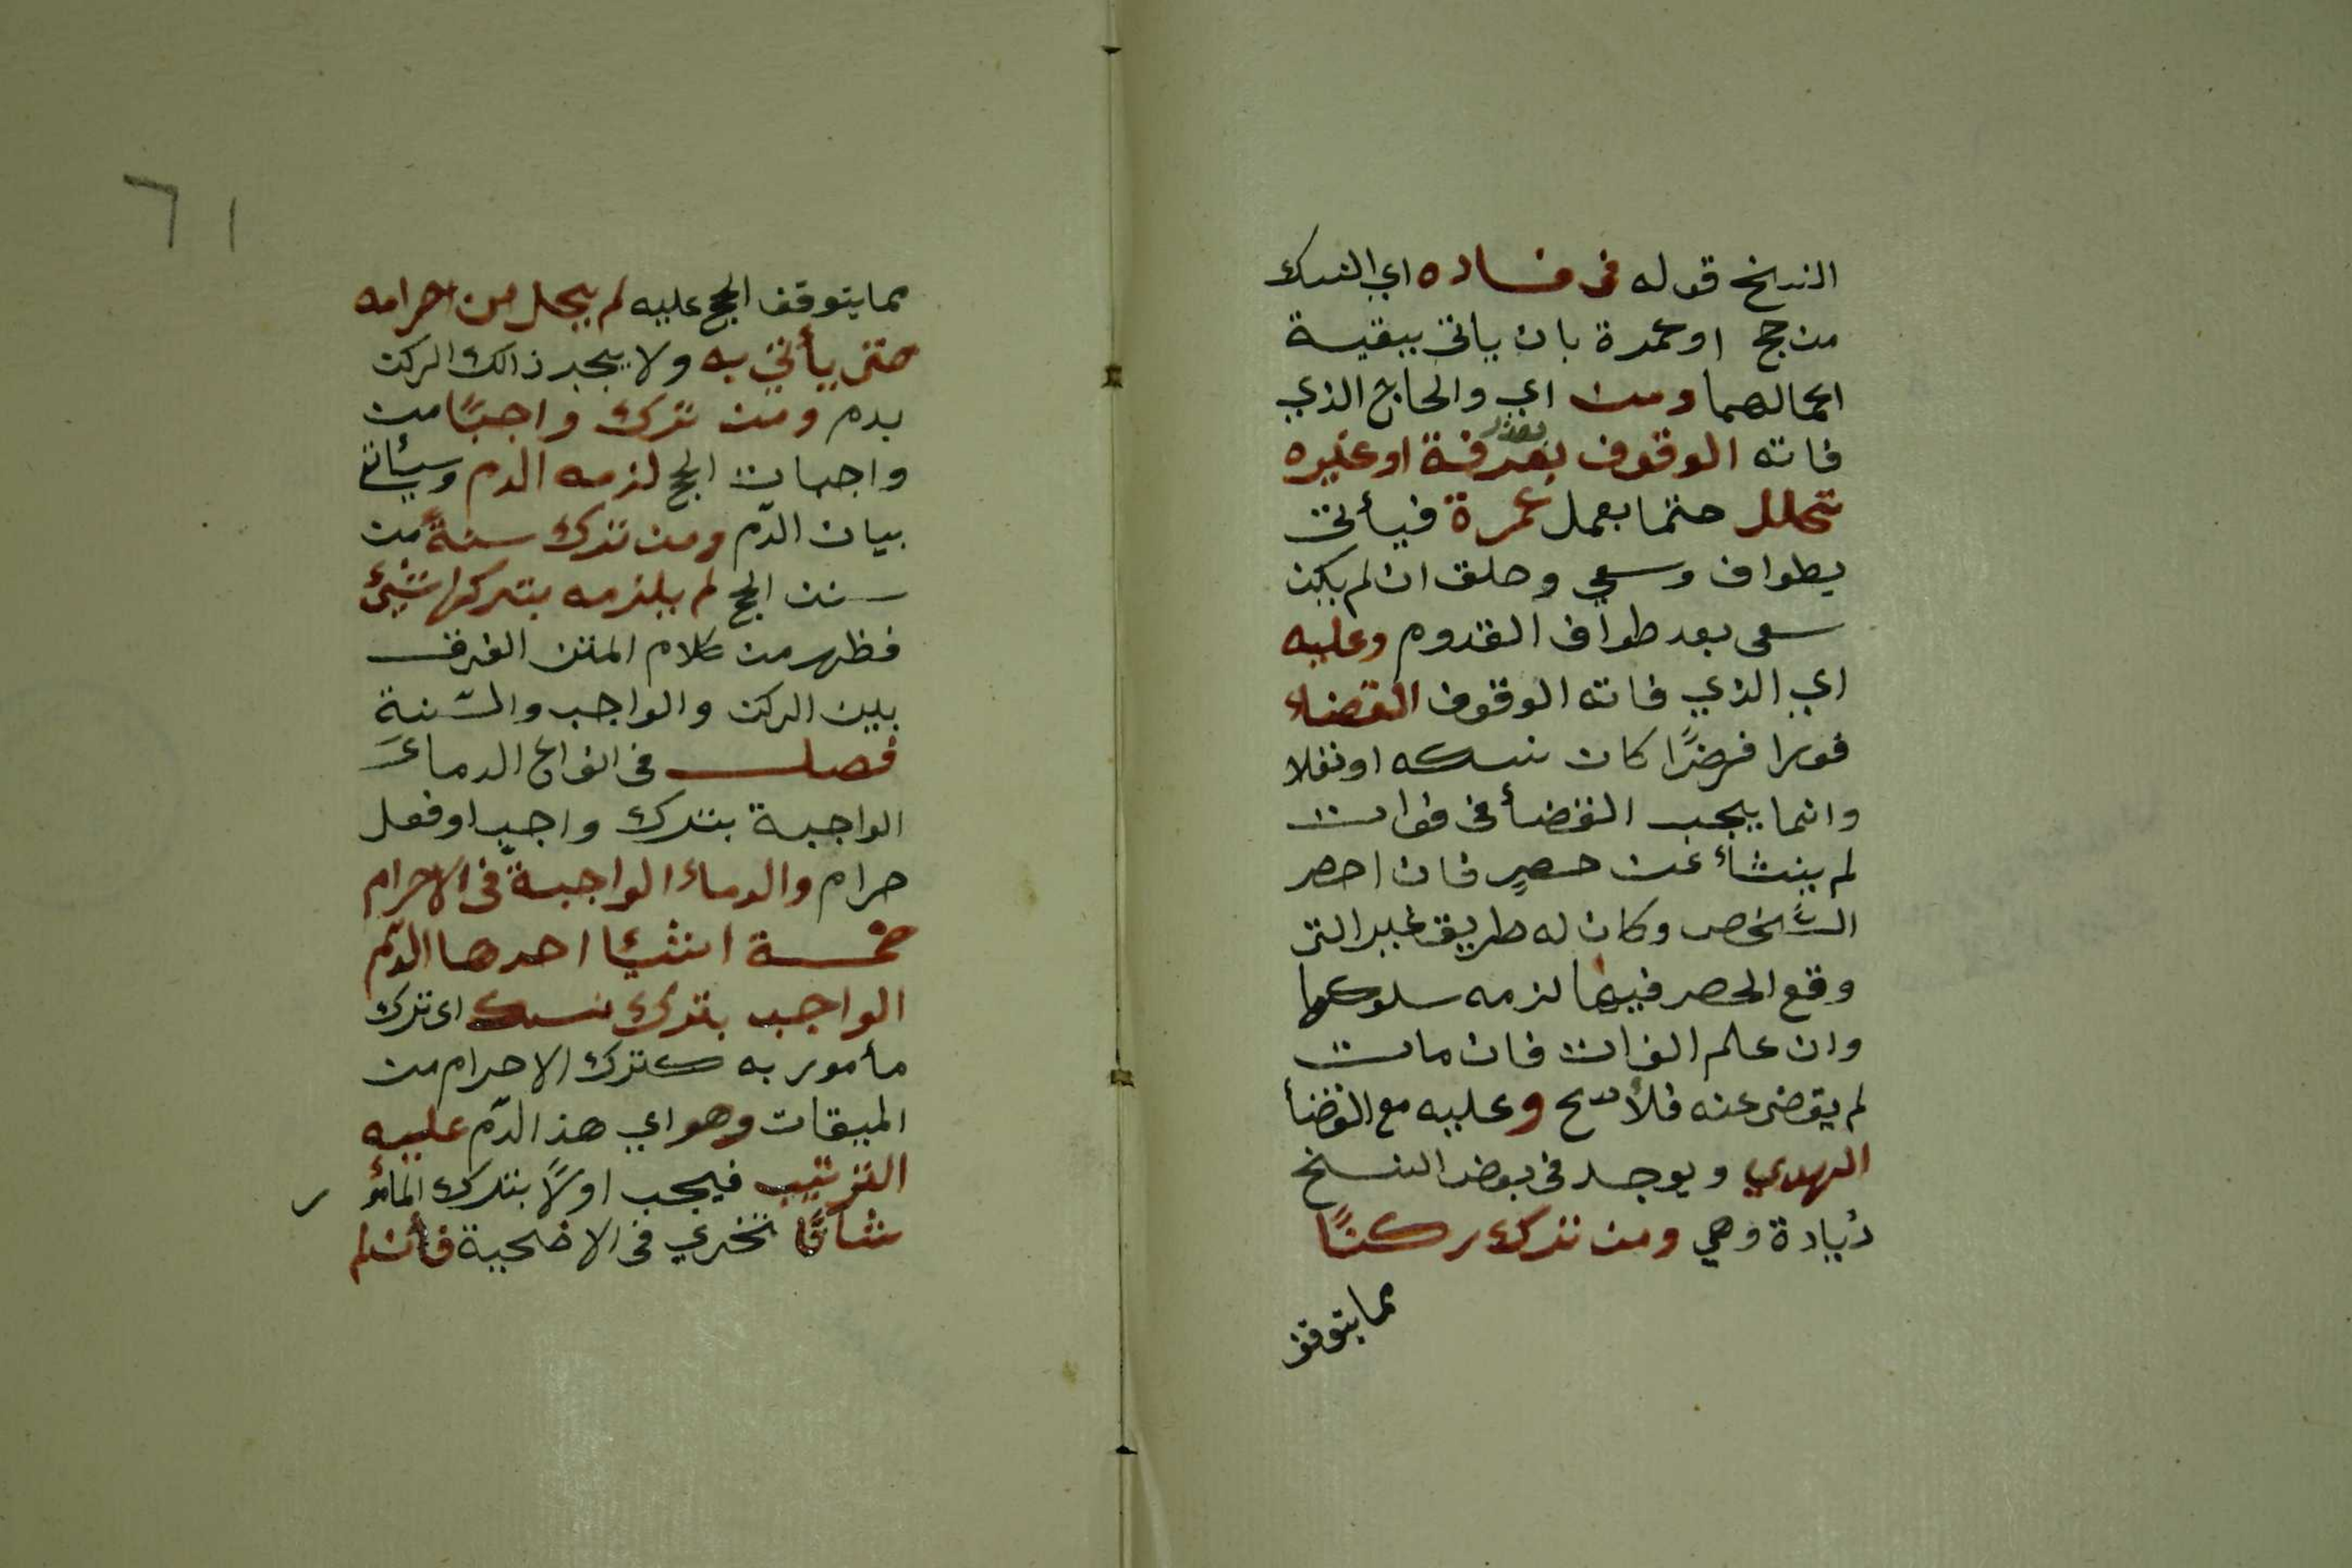 النسخ قوله فى فساده اي النسك
من حج او عمرة بان ياتى ببقية
اعمالهما ومن اي والحاج الذي
فاته الوقوف بعرفة بعذر او غيره
تحلل حتما بعمل عمرة فيأتى
بطواف وسعي وحلق ان لم يكن
سعى بعد طواف القدوم وعليه
اي الذي فاته الوقوف القضاء
فورا فرضًا كان نسكه او نفلا
وانما يجب القضأ فى فوات
لم ينشأ عن حصرٍ فان احصر
الشخص وكان له طريق غير التى
وقع الحصر فيها لزمه سلوكها
وان علم الفوات فان مات
لم يقض عنه فلأصح وعليه مع القضأ
الهدي ويوجد فى بعض النسخ
زيادة وهي ومن ترك ركنًا
مما يتوقف
٦١
مما يتوقف الحج عليه لم يحل من احرامه
حتى يأتي به ولا يجبر ذالك الركن
بدم ومن ترك واجبًا من
واجبات الحج لزمه الدم وسيأتى
بيان الدّم ومن ترك سنةً من
سنن الحج لم يلزمه بتركها شيئ
فظهر من كلام المتن الفرق
بين الركن والواجب والسّنة
فصل فى انواع الدماء
الواجبة بترك واجبٍ او فعل
حرام والدماء الواجبة فى الاحرام
خمسة اشيا احدها الدّم
الواجب بترك نسك اى ترك
مأمور به كترك الاحرام من
الميقات وهو اي هذ الدّم عليه
الترتيب فيجب اولاً بترك المأمو ر
شاةً تجزي فى الاضحية فأن لم